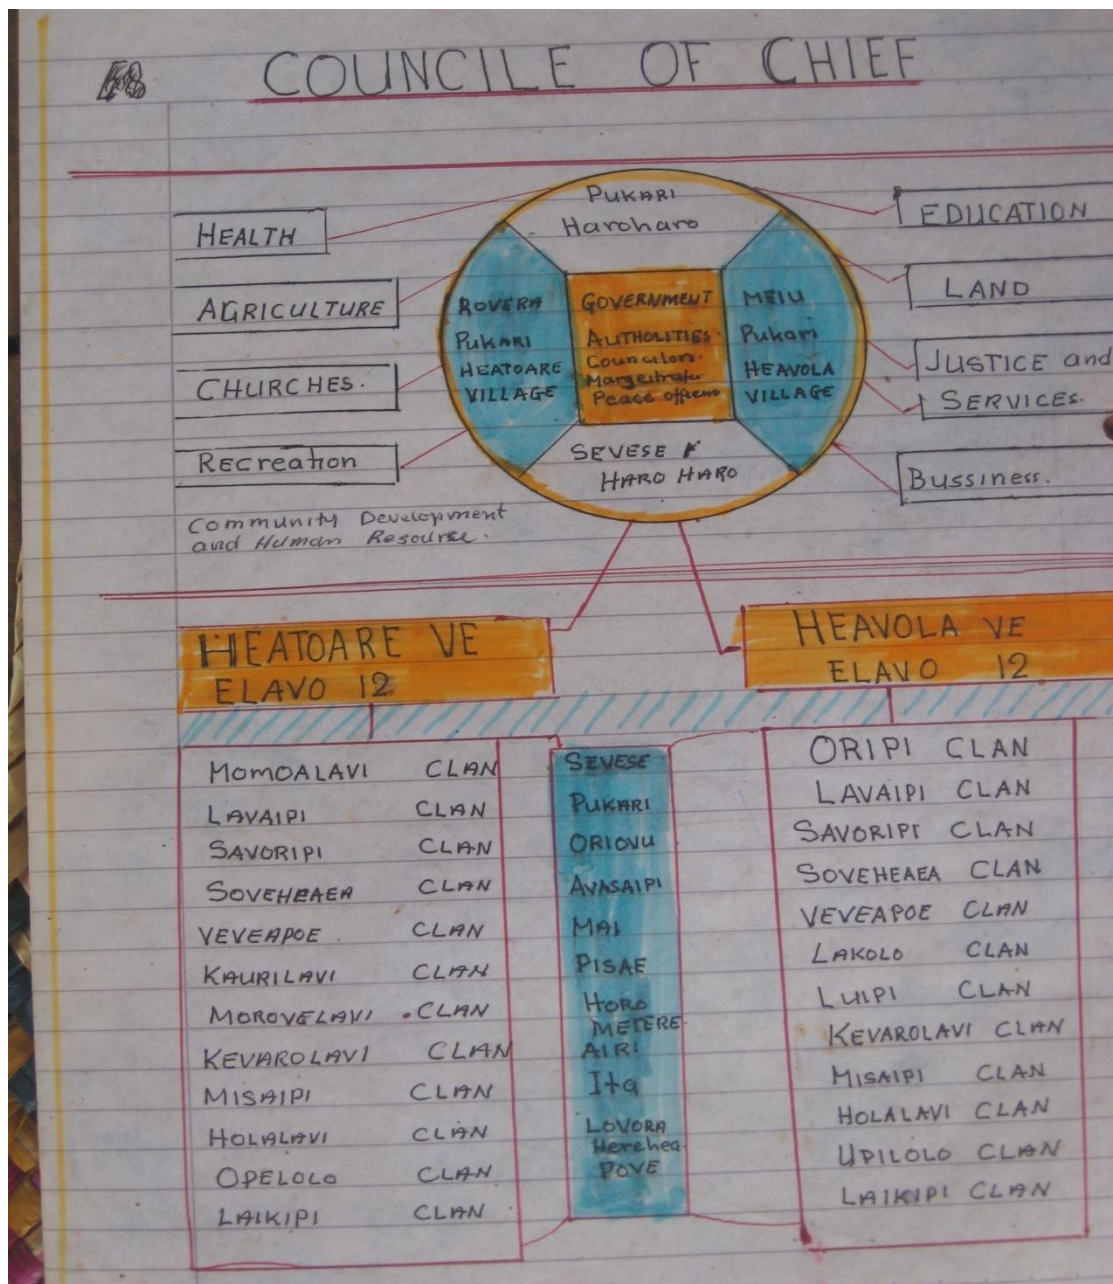 COUNCILE OF CHIEF
HEALTH
AGRICULTURE
CHURCHES.
Recreation
Community Development
and Human Resourse.
PUKARI
Haroharo
ROVERA
PUKARI
HEATOARE
VILLAGE
GOVERNMENT
AUTHOLITIES.
Councilors.
Margestrate
Peace officers
MEIU
Pukari
HEAVOLA
VILLAGE
SEVESE
HARO HARO
EDUCATION
LAND
JUSTICE and
SERVICES.
Bussiness.
HEATOARE VE
ELAVO 12
HEAVOLA VE
ELAVO 12
MOMOALAVI CLAN
LAVAIPI CLAN
SAVORIPI CLAN
SOVEHEAEA CLAN
VEVEAPOE CLAN
KAURILAVI CLAN
MOROVELAVI . CLAN
KEVAROLAVI CLAN
MISAIPI CLAN
HOLALAVI CLAN
OPELOLO CLAN
LAIKIPI CLAN
SEVESE
PUKARI
ORIOVU
AVASAIPI
MAI
PISAE
HORO
METERE
AIRI
Ita
LOVORA
Herehea
POVE
ORIPI CLAN
LAVAIPI CLAN
SAVORIPI CLAN
SOVEHEAEA CLAN
VEVEAPOE CLAN
LAKOLO CLAN
LUIPI CLAN
KEVAROLAVI CLAN
MISAIPI CLAN
HOLALAVI CLAN
UPILOLO CLAN
LAIKIPI CLAN